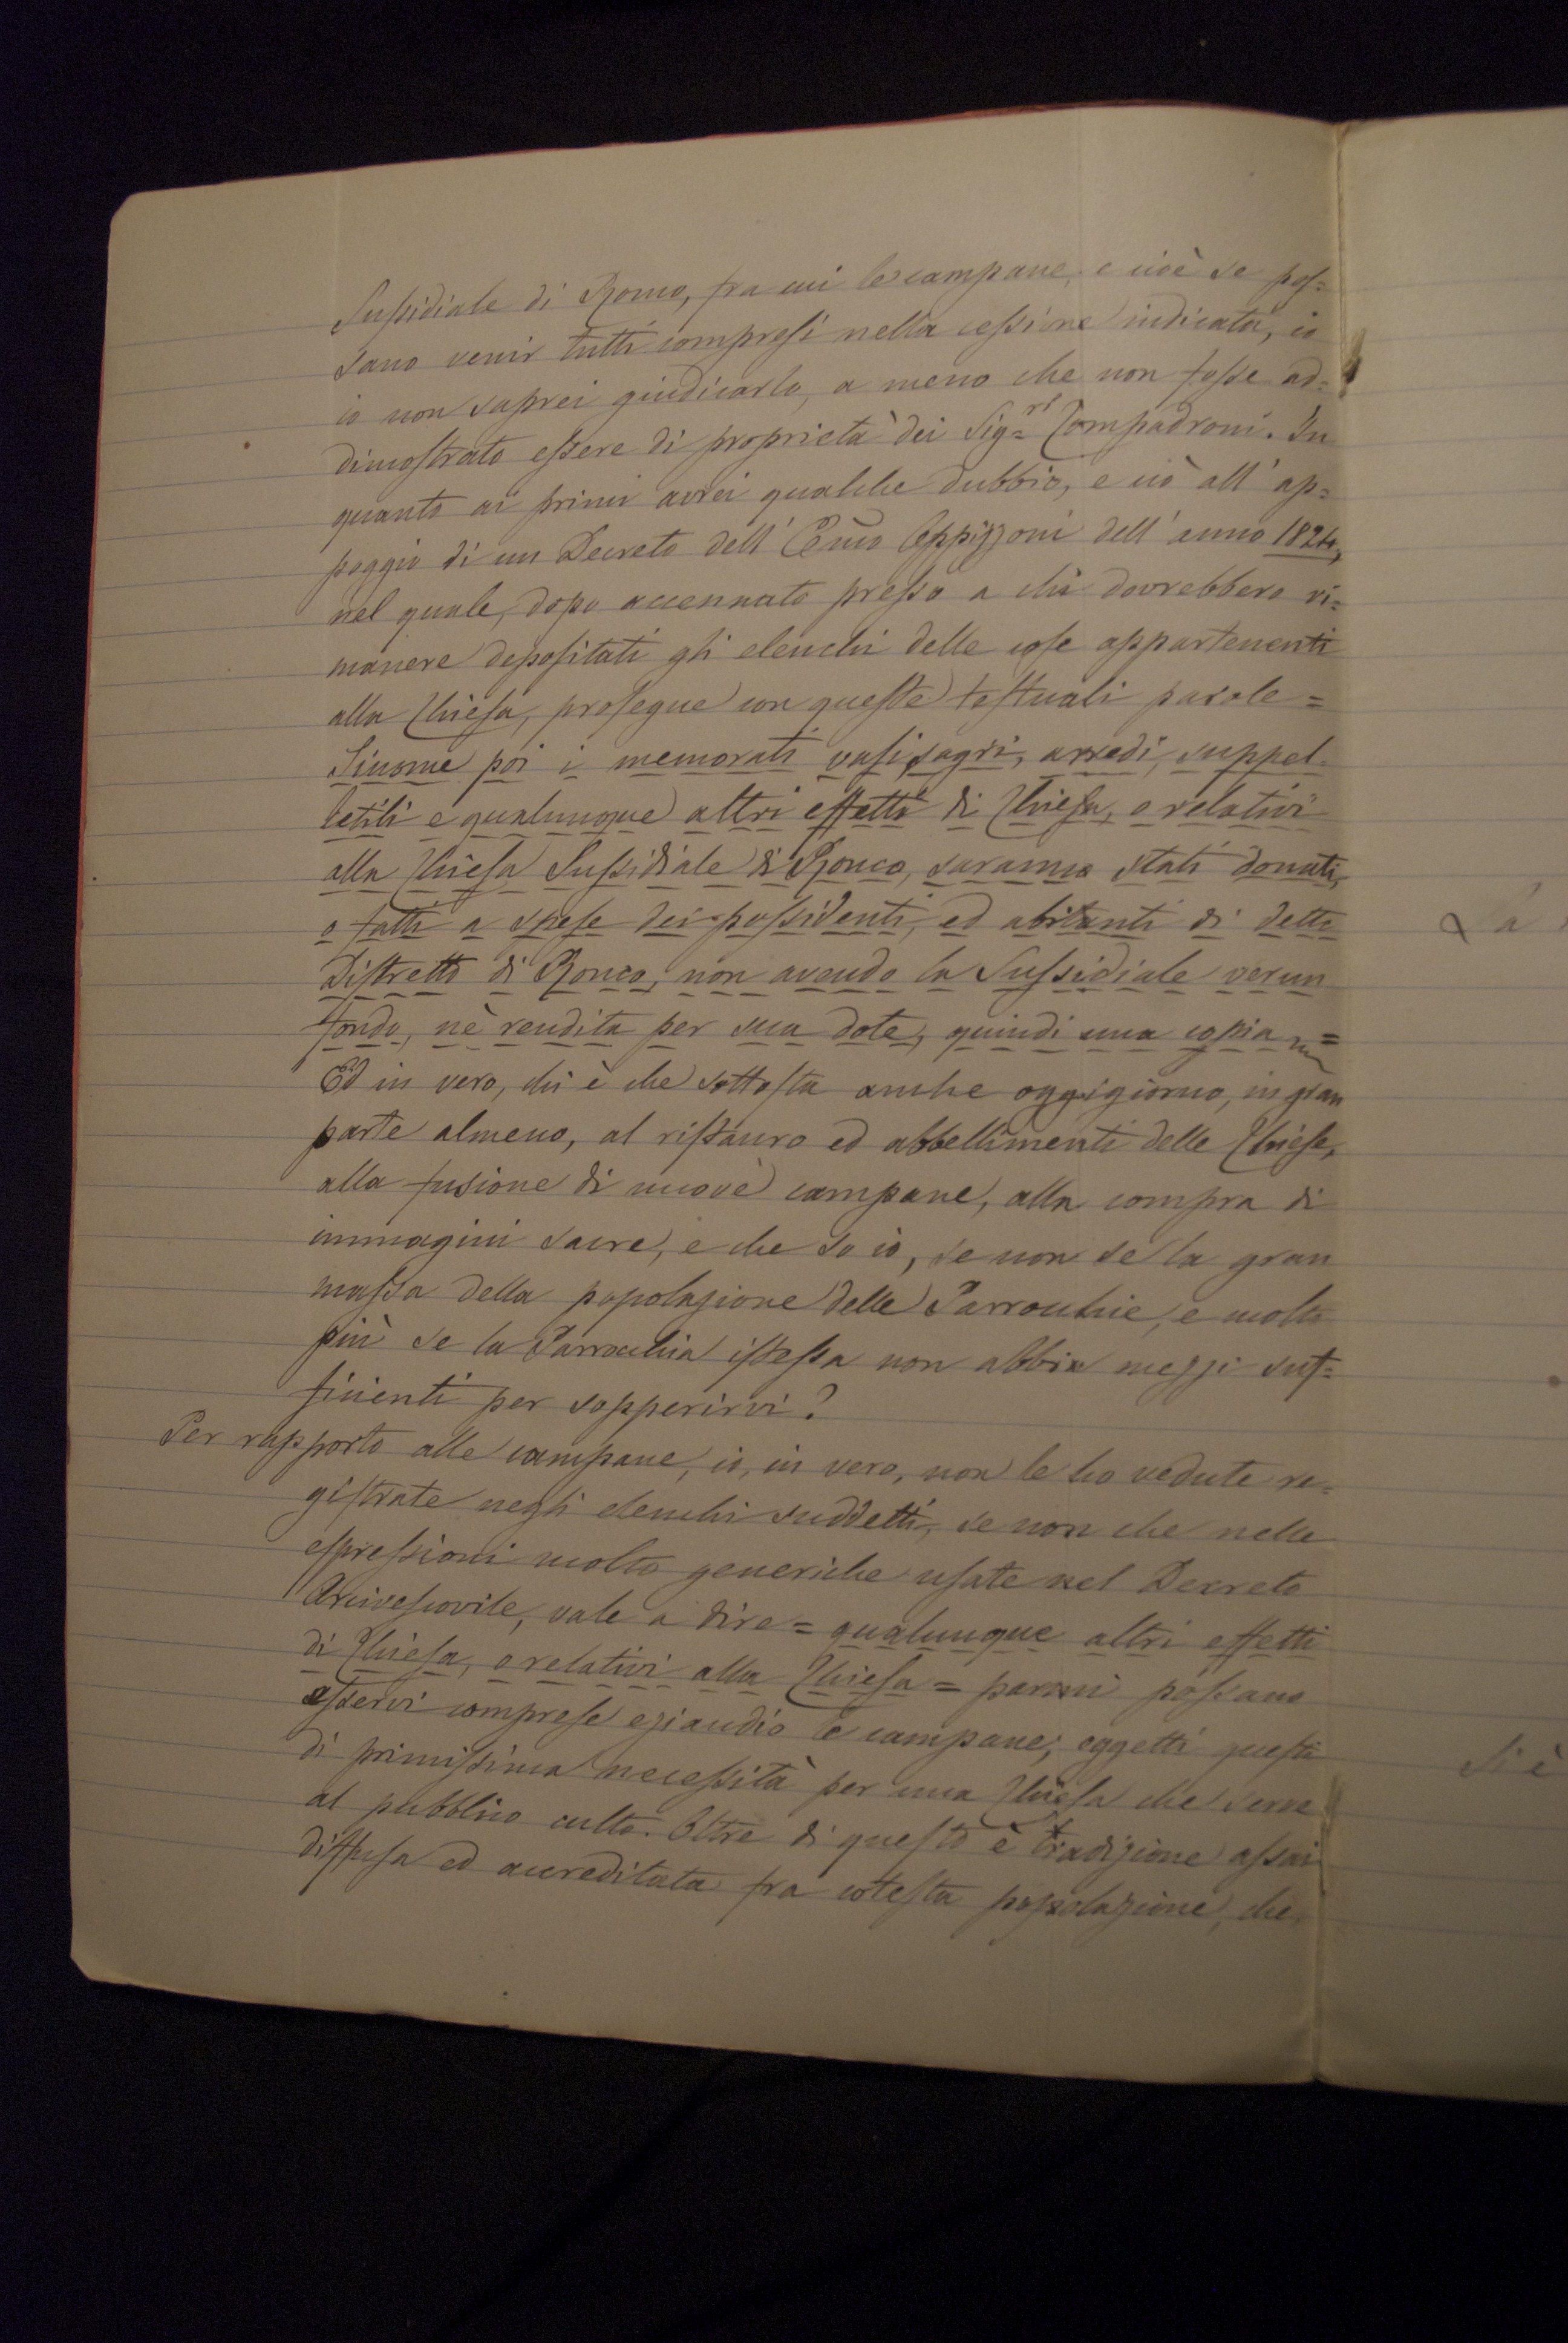 Sussidiale di Ronco, fra cui le campane, e cioè se pos=
sano venir tutti compresi nella cessione indicata, io
io non saprei giudicarlo, a meno che non fosse ad=
dimostrato essere di proprietà dei Sig=ri Compadroni. In
quanto ai primi avrei qualche dubbio, e ciò all' ap=
poggio di un Decreto dell' Emo Oppizzoni dell' anno 1824,
nel quale, dopo accennato presso a chi dovrebbero ri=
manere depositati gli elenchi delle cose appartenenti
alla Chiesa, prosegue con queste testuali parole =
Siccome poi i memorati vasi sagri, arredi, suppel=
letili e qualunque altri effetti di Chiesa, o relativi
alla Chiesa Sussidiale di Ronco, saranno stati donati,
o fatti a spese dei possidenti, ed abitanti di detto
Distretto di Ronco, non avendo la Sussidiale verun
fondo, nè rendita per sua dote, quindi una copia =
Ed in vero, chi è che sottosta anche oggigiorno, in gran
parte almeno, al ristauro ed abbellimenti delle Chiese,
alla fusione di nuove campane, alla compra di
immagini sacre, e che so io, se non se la gran
massa della popolazione delle Parrocchie, e molto
più se la Parrocchia istessa non abbia mezzi suf=
ficienti per sopperirvi?
Per rapporto alle campane, io, in vero, non le ho vedute re=
gistrate negli elenchi suddetti, se non che nelle
espressioni molto generiche usate nel Decreto
Arcivescovile, vale a dire = qualunque altri effetti
di Chiesa, o relativi alla Chiesa = parmi possano
esservi comprese eziandio le campane, oggetti questi
di primissima necessità per una Chiesa che serve
al pubblico culto. Oltre di questo è tradizione assai
diffusa ed accreditata fra cotesta popolazione, che
La
Si è